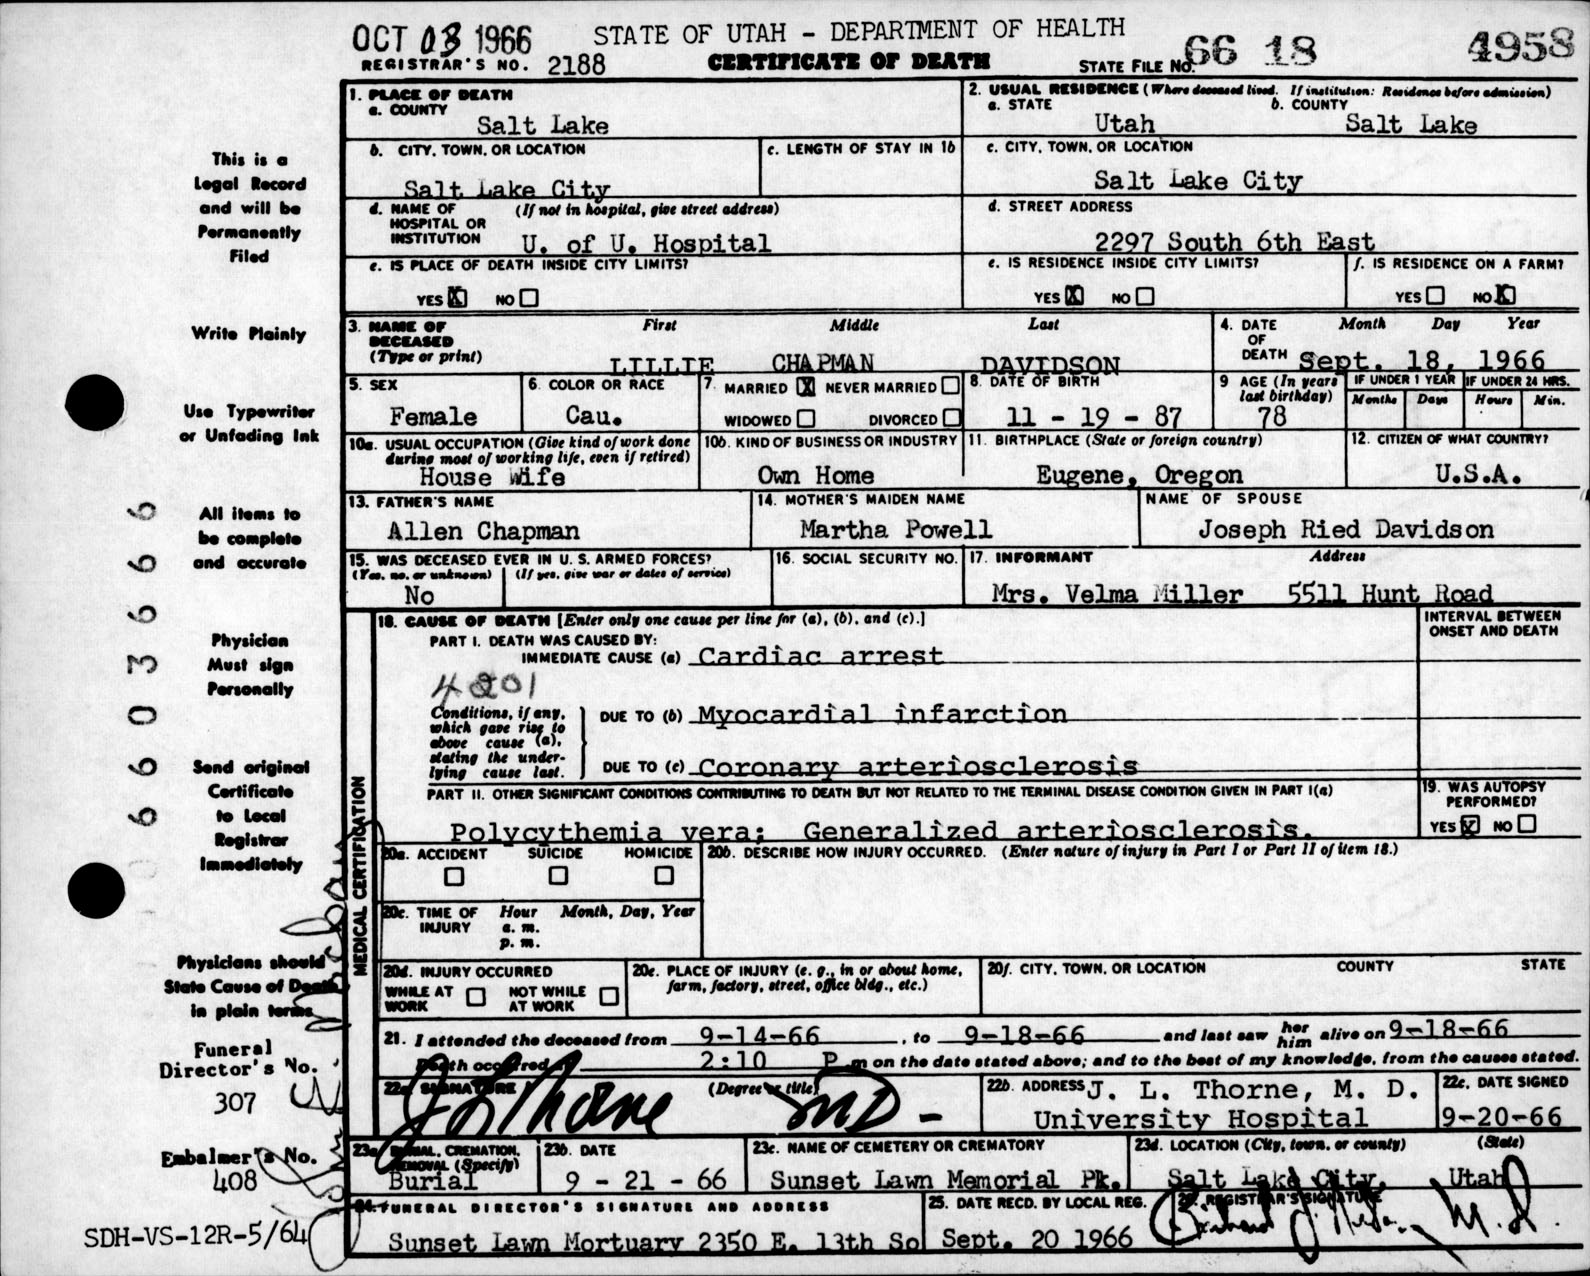 OCT 03 1966
STATE OF UTAH - DEPARTMENT OF HEALTH
REGISTRAR'S NO. 2188
CERTIFICATE OF DEATH
STATE FILE NO. 66 18 4958
This is a
Legal Record
and will be
Permanently
Filed
Write Plainly
Use Typewriter
or Unfading Ink
All items to
be complete
and accurate
Physician
Must sign
Personally
Send original
Certificate
to Local
Registrar
Immediately
Physicians should
State Cause of Death
in plain terms
Funeral
Director's No.
307
Embalmer's No.
408
SDH-VS-12R-5/64
6 6 0 3 6 6 6
1. PLACE OF DEATH
a. COUNTY
Salt Lake
2. USUAL RESIDENCE (Where deceased lived. If institution: Residence before admission)
a. STATE b. COUNTY
Utah Salt Lake
b. CITY, TOWN, OR LOCATION
Salt Lake City
c. LENGTH OF STAY IN 1b
c. CITY, TOWN, OR LOCATION
Salt Lake City
d. NAME OF (If not in hospital, give street address)
HOSPITAL OR
INSTITUTION U. of U. Hospital
d. STREET ADDRESS
2297 South 6th East
e. IS PLACE OF DEATH INSIDE CITY LIMITS?
YES X NO
e. IS RESIDENCE INSIDE CITY LIMITS?
YES X NO
f. IS RESIDENCE ON A FARM?
YES NO X
3. NAME OF First Middle Last
DECEASED
(Type or print)
LILLIE CHAPMAN DAVIDSON
4. DATE Month Day Year
OF
DEATH Sept. 18, 1966
5. SEX
Female
6. COLOR OR RACE
Cau.
7. MARRIED X NEVER MARRIED
WIDOWED DIVORCED
8. DATE OF BIRTH
11 - 19 - 87
9 AGE (In years
last birthday)
78
IF UNDER 1 YEAR IF UNDER 24 HRS.
Months Days Hours Min.
10a. USUAL OCCUPATION (Give kind of work done
during most of working life, even if retired)
House Wife
10b. KIND OF BUSINESS OR INDUSTRY
Own Home
11. BIRTHPLACE (State or foreign country)
Eugene, Oregon
12. CITIZEN OF WHAT COUNTRY?
U.S.A.
13. FATHER'S NAME
Allen Chapman
14. MOTHER'S MAIDEN NAME
Martha Powell
NAME OF SPOUSE
Joseph Ried Davidson
15. WAS DECEASED EVER IN U. S. ARMED FORCES?
(Yes, no, or unknown) (If yes, give war or dates of service)
No
16. SOCIAL SECURITY NO.
17. INFORMANT Address
Mrs. Velma Miller 5511 Hunt Road
MEDICAL CERTIFICATION
18. CAUSE OF DEATH [Enter only one cause per line for (a), (b), and (c).]
PART I. DEATH WAS CAUSED BY:
IMMEDIATE CAUSE (a) Cardiac arrest
INTERVAL BETWEEN
ONSET AND DEATH
4201
Conditions, if any,
which gave rise to
above cause (a),
stating the under-
lying cause last.
DUE TO (b) Myocardial infarction
DUE TO (c) Coronary arteriosclerosis
PART II. OTHER SIGNIFICANT CONDITIONS CONTRIBUTING TO DEATH BUT NOT RELATED TO THE TERMINAL DISEASE CONDITION GIVEN IN PART I(a)
Polycythemia vera; Generalized arteriosclerosis.
19. WAS AUTOPSY
PERFORMED?
YES X NO
20a. ACCIDENT SUICIDE HOMICIDE
20b. DESCRIBE HOW INJURY OCCURRED. (Enter nature of injury in Part I or Part II of item 18.)
20c. TIME OF Hour Month, Day, Year
INJURY a. m.
p. m.
20d. INJURY OCCURRED
WHILE AT NOT WHILE
WORK AT WORK
20e. PLACE OF INJURY (e. g., in or about home,
farm, factory, street, office bldg., etc.)
20f. CITY, TOWN, OR LOCATION COUNTY STATE
21. I attended the deceased from 9-14-66, to 9-18-66 and last saw her him alive on 9-18-66
Death occurred at 2:10 P m on the date stated above; and to the best of my knowledge, from the causes stated.
22a. SIGNATURE (Degree or title)
J L Thorne MD -
22b. ADDRESS J. L. Thorne, M. D.
University Hospital
22c. DATE SIGNED
9-20-66
23a. BURIAL, CREMATION,
REMOVAL (Specify)
Burial
23b. DATE
9 - 21 - 66
23c. NAME OF CEMETERY OR CREMATORY
Sunset Lawn Memorial Pk.
23d. LOCATION (City, town, or county) (State)
Salt Lake City, Utah
24. FUNERAL DIRECTOR'S SIGNATURE AND ADDRESS
Sunset Lawn Mortuary 2350 E. 13th So
25. DATE RECD. BY LOCAL REG.
Sept. 20 1966
26. REGISTRAR'S SIGNATURE
M.D.